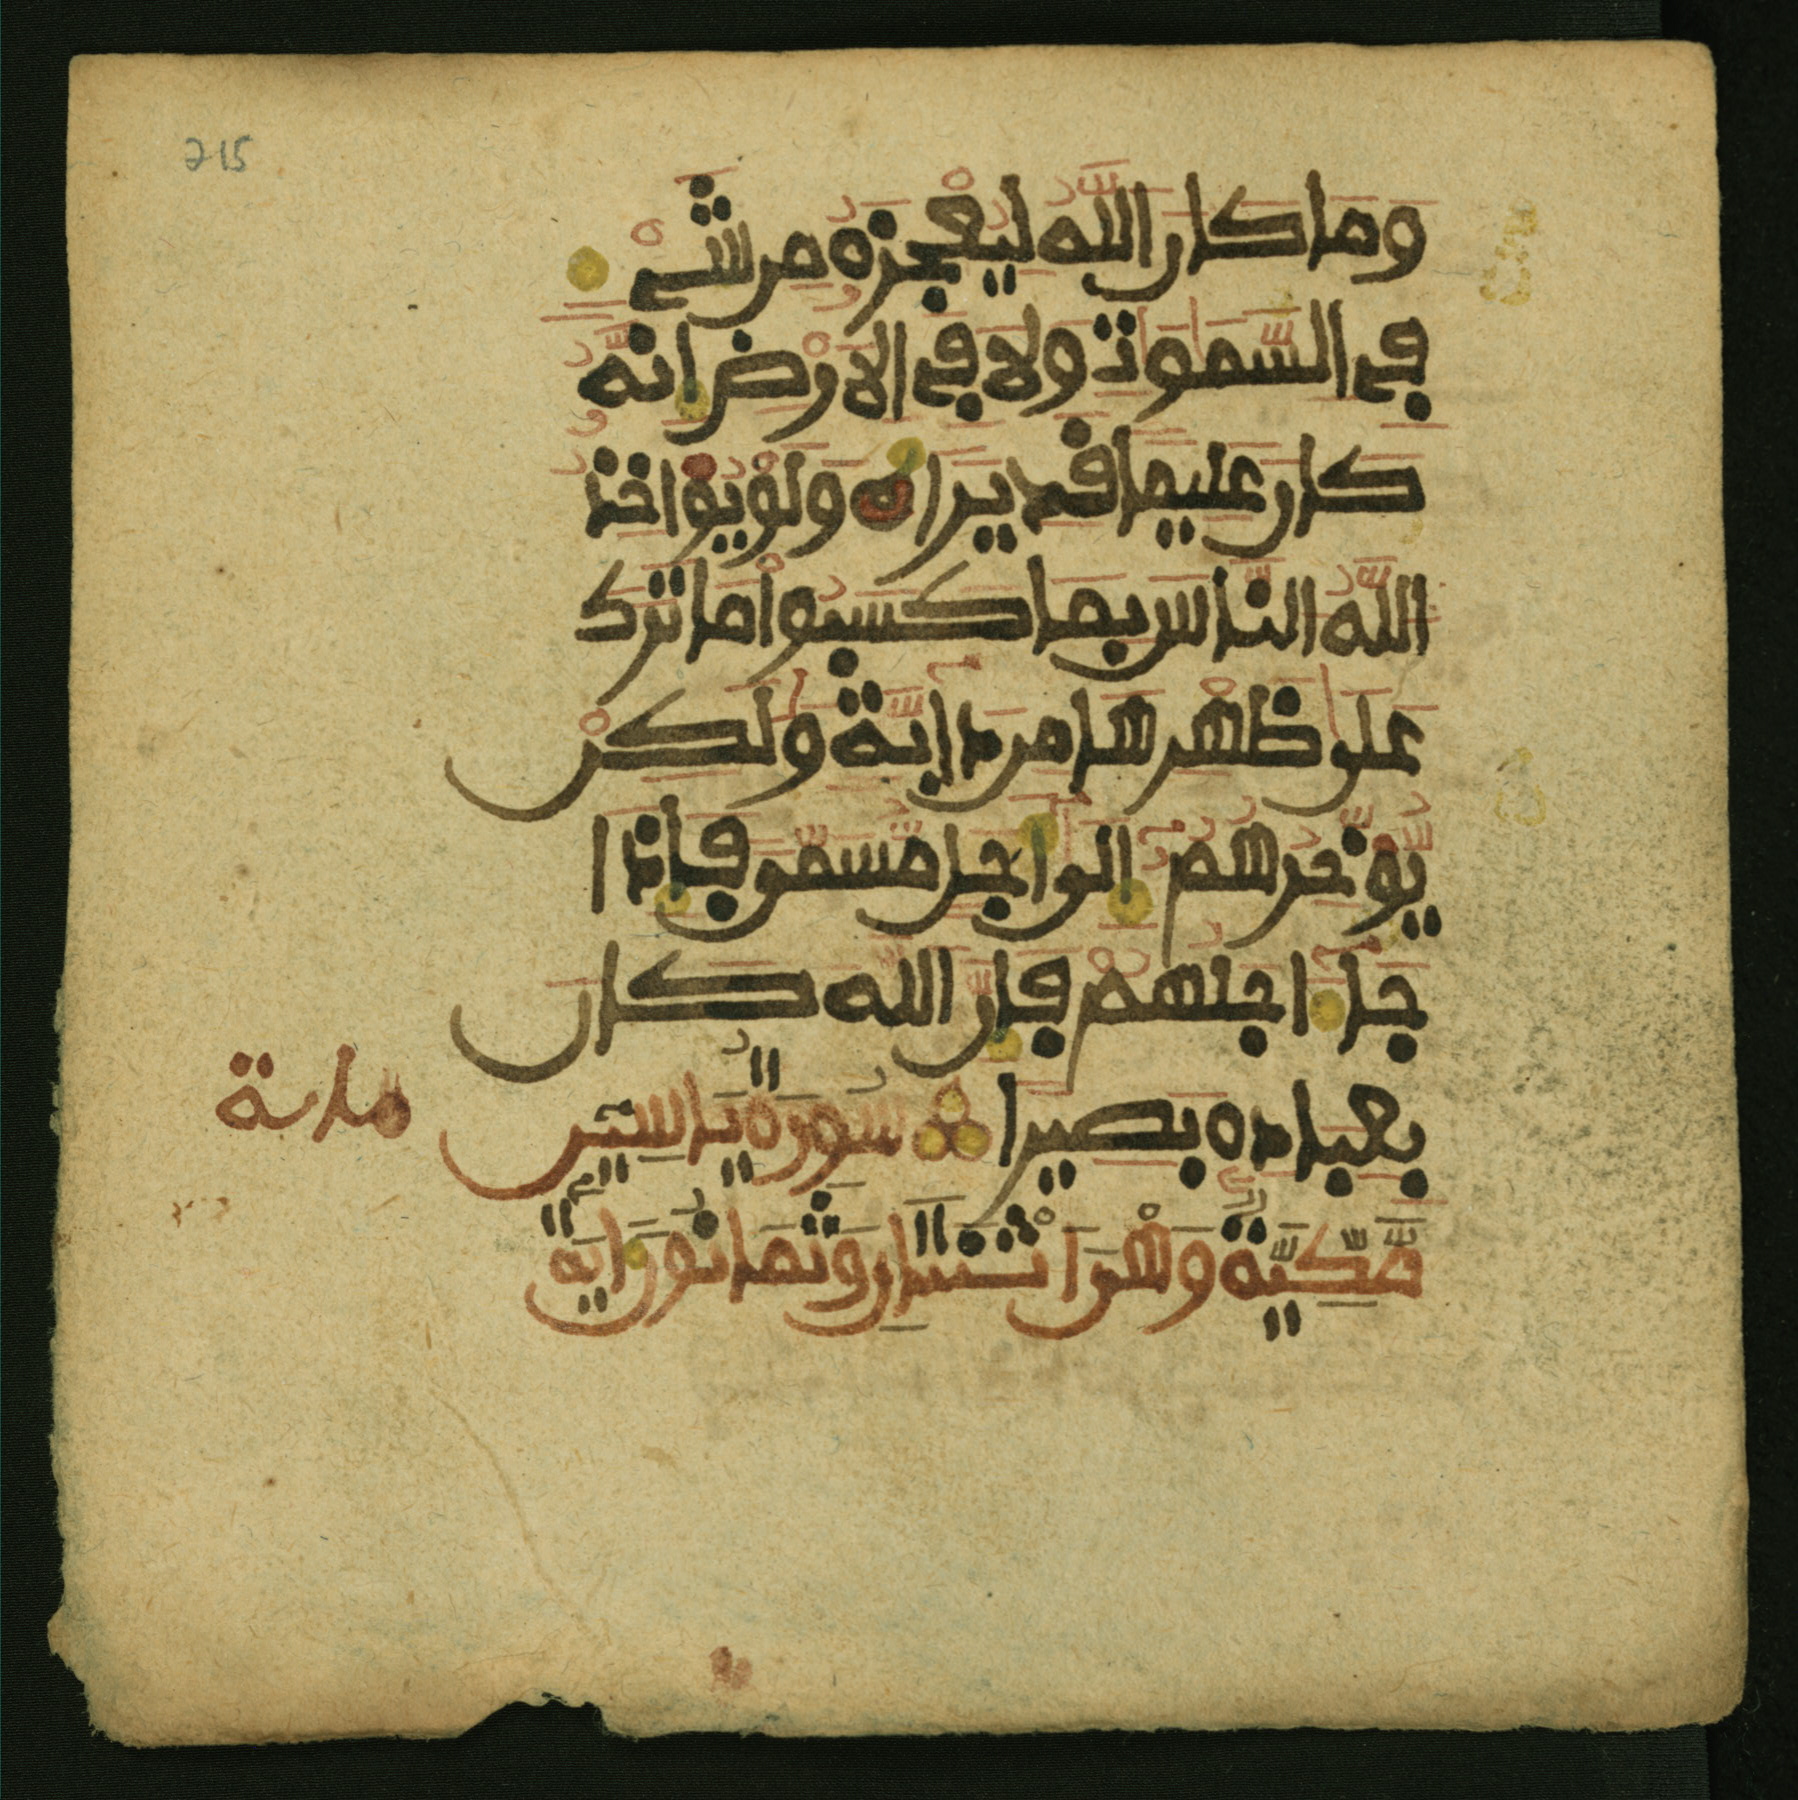 215
وَمَا كَانَ اللَّهُ لِيُعْجِزَهُ مِن شَيْءٍ
فِي السَّمَٰوَٰتِ وَلَا فِي الْأَرْضِ إِنَّهُ
كَانَ عَلِيمًا قَدِيرًا وَلَوْ يُؤَاخِذُ
اللَّهُ النَّاسَ بِمَا كَسَبُوا مَا تَرَكَ
عَلَىٰ ظَهْرِهَا مِن دَابَّةٍ وَلَٰكِنْ
يُؤَخِّرُهُمُ إِلَىٰ أَجَلٍ مُّسَمًّى فَإِذَا
جَاءَ أَجَلُهُمْ فَإِنَّ اللَّهَ كَانَ
بِعِبَادِهِ بَصِيرًا سُورَةُ يَاسِين
مَكِّيَّةٌ وَهْيَ اثْنَتَانِ وَثَمَانُونَ ءَايَةً